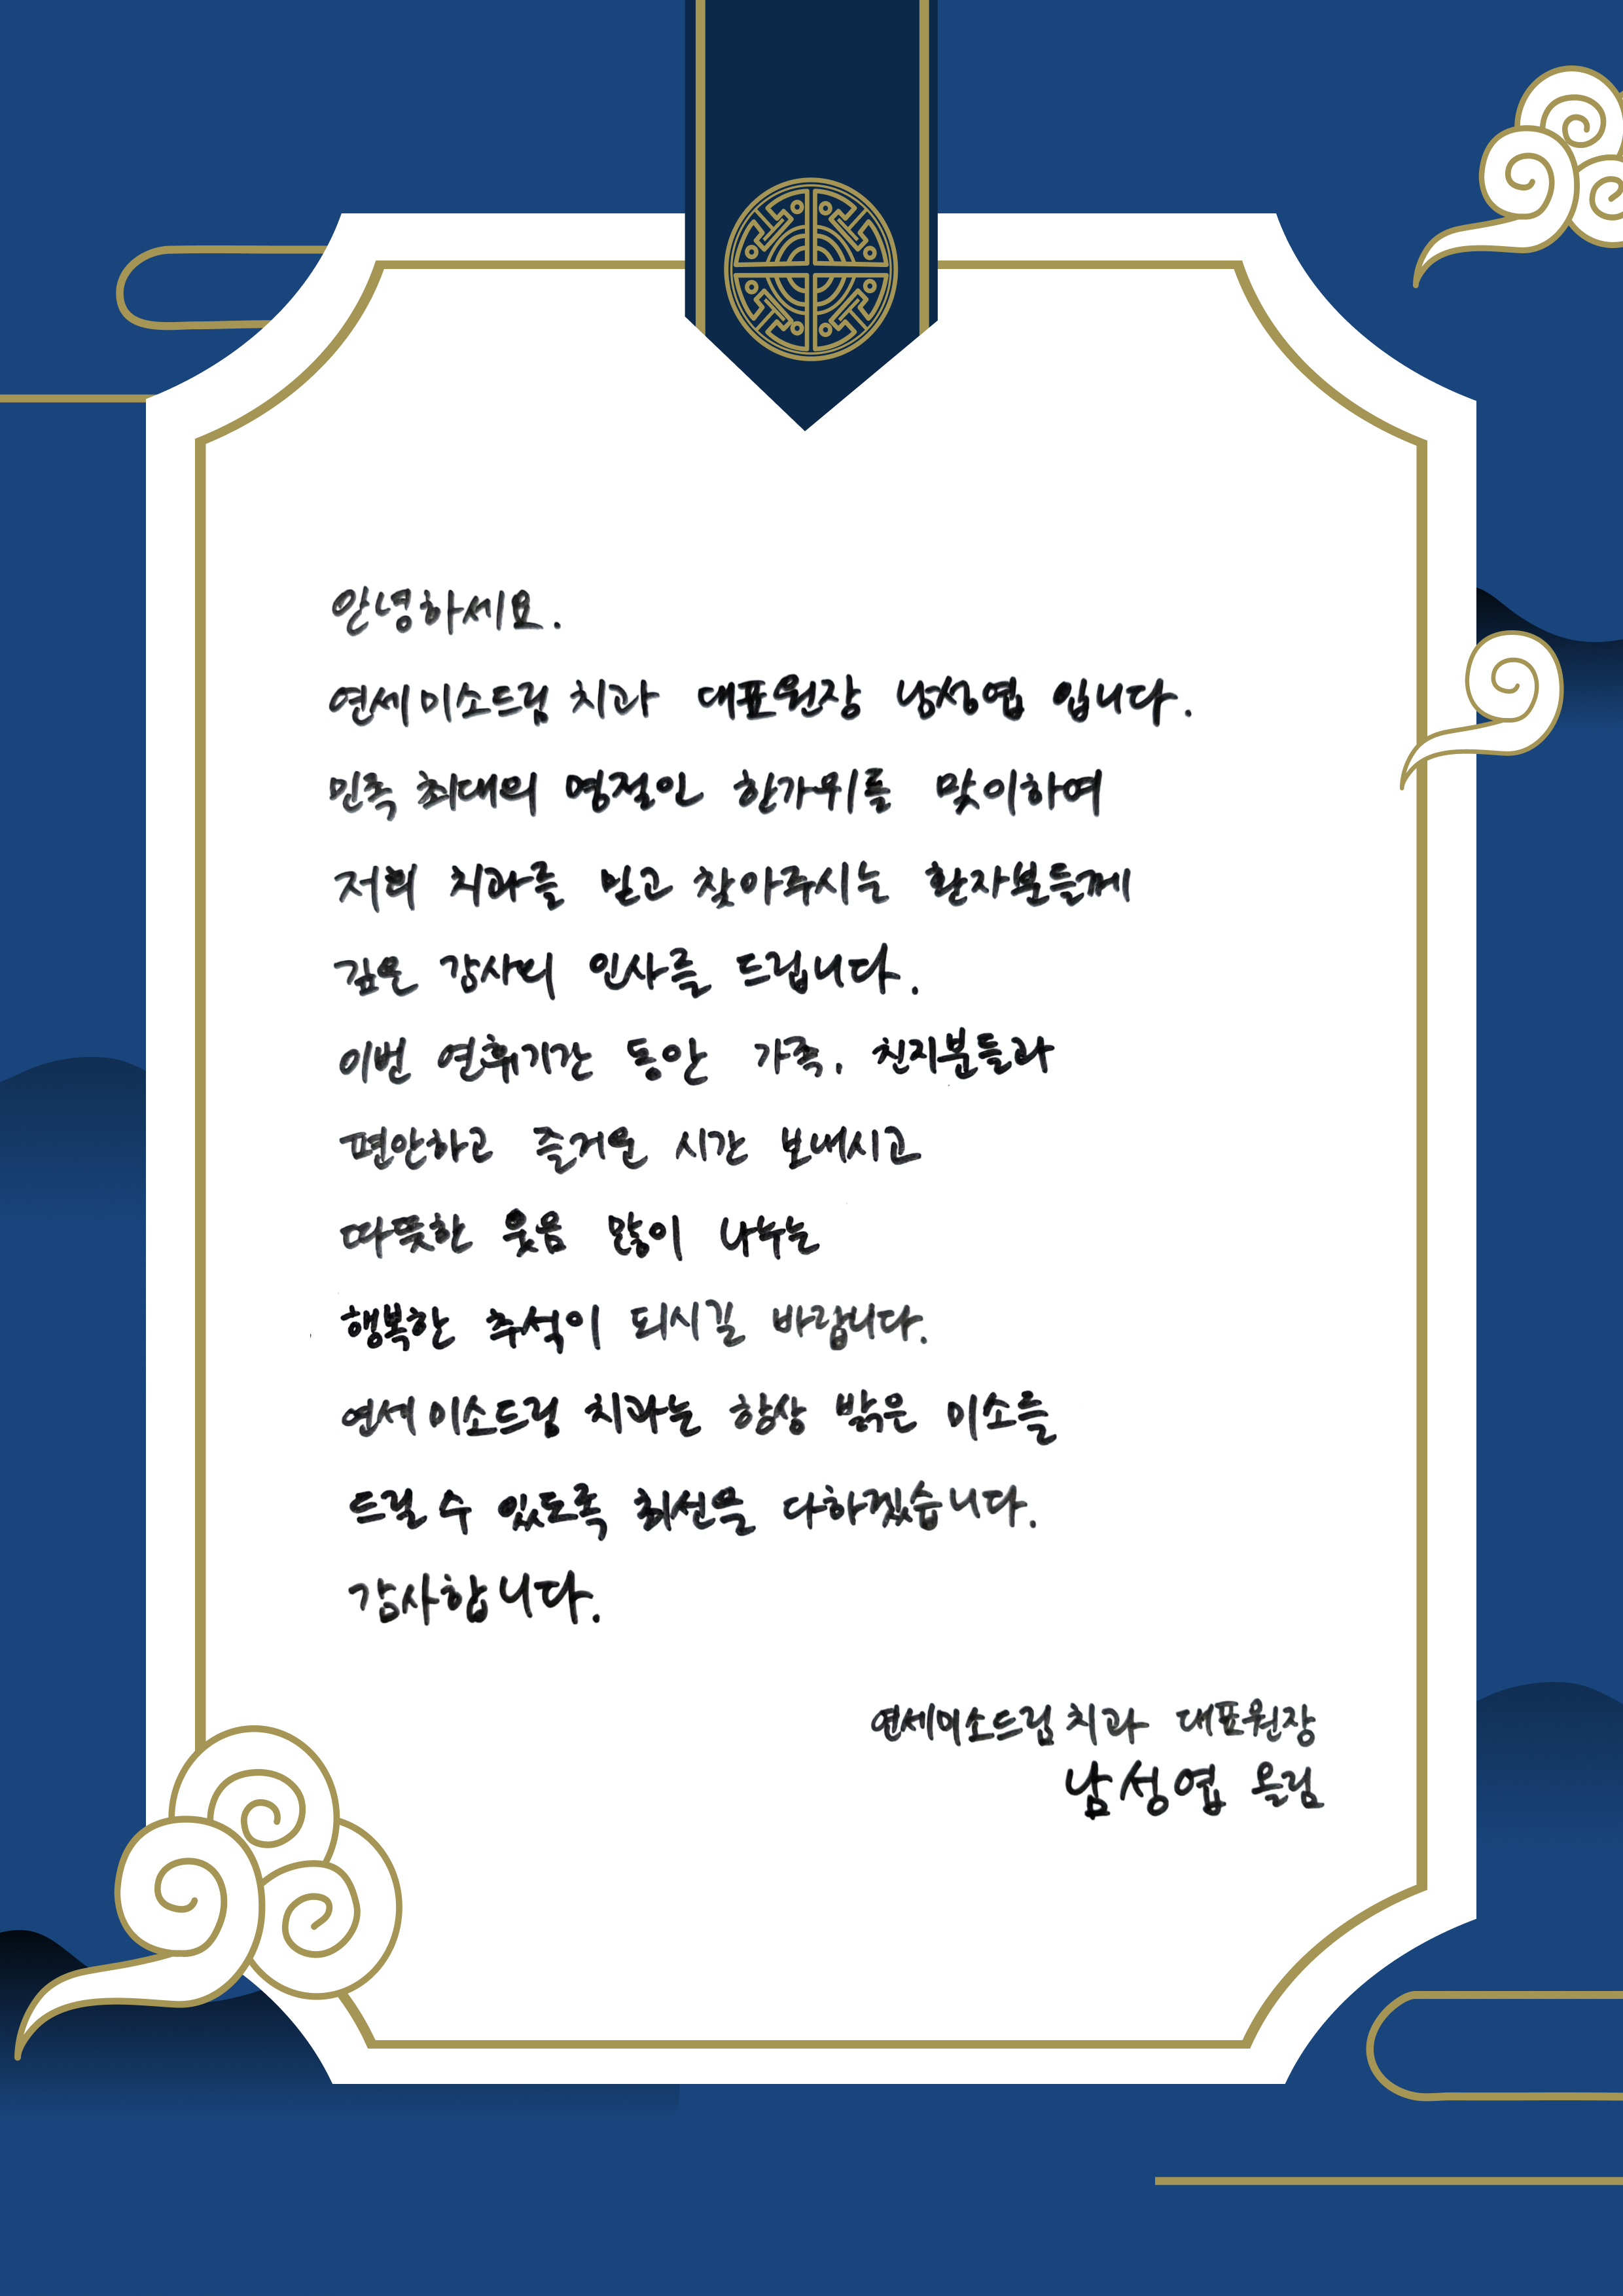 안녕하세요.
연세미소드림 치과 대표원장 남성엽 입니다.
민족 최대의 명절인 한가위를 맞이하여
저희 치과를 믿고 찾아주시는 환자분들께
깊은 감사의 인사를 드립니다.
이번 연휴기간 동안 가족, 친지분들과
편안하고 즐거운 시간 보내시고
따뜻한 웃음 많이 나누는
행복한 추석이 되시길 바랍니다.
연세미소드림 치과는 항상 밝은 미소를
드릴 수 있도록 최선을 다하겠습니다.
감사합니다.
연세미소드림 치과 대표원장
남성엽 올림